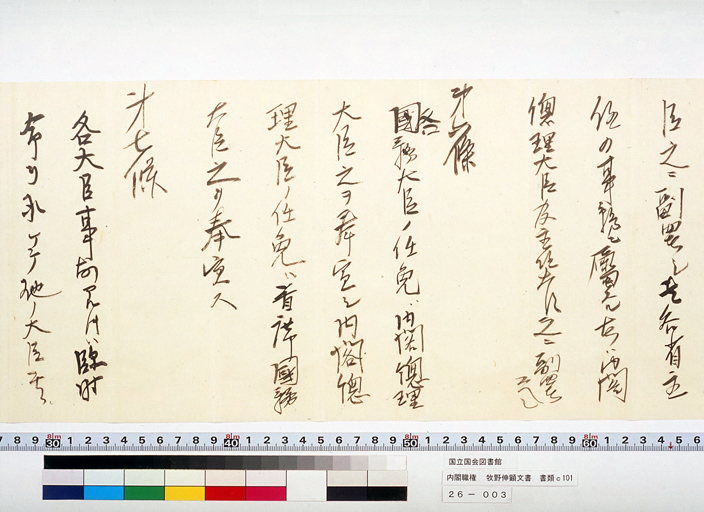 臣之ニ副署シ其各省主
任の事務ニ属スル者ハ内閣
總理大臣及主任大臣之ニ副署スヘシ
第六條
各國務大臣ノ任免ハ内閣總理
大臣之ヲ奉宣シ内閣總
理大臣ノ任免ハ首席國務
大臣之ヲ奉宣ス
第七條
各大臣事故アルトキハ臨時
命ヲ承ケテ他ノ大臣
7 8 9 30 1 2 3 4 5 6 7 8 9 40 1 2 3 4 5 6 7 8 9 50 1 2 3 4 5 6 7 8 9 60 1 2 3 4 5 6
国立国会図書館
内閣職権 牧野伸顕文書 書類c101
26-003